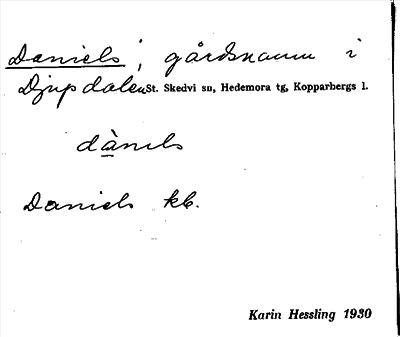 Daniels, gårdsnamn i
Djupdalen St. Skedvi sn, Hedemora tg, Kopparbergs l.
dànils
Daniels kb.
Karin Hessling 1930